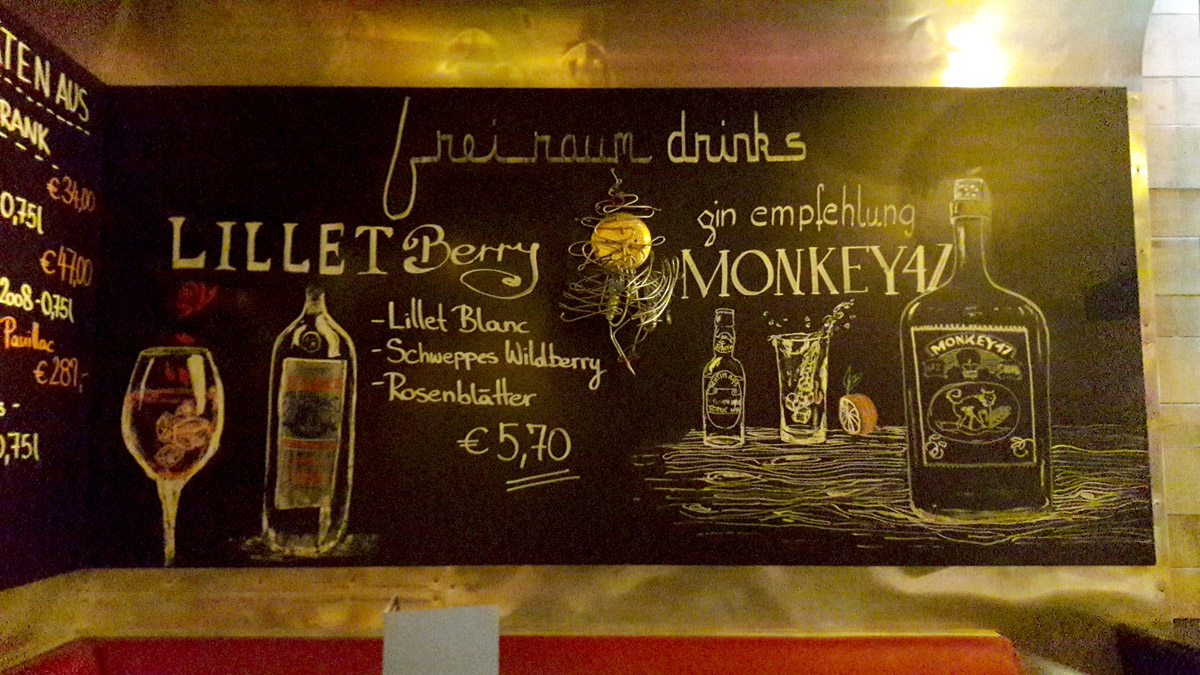 TEN AUS
RANK
€34,00
0,75l
€47,00
2008-0,75l
Pauillac
€287,-
0,75l
frei raum drinks
LILLET Berry
-Lillet Blanc
-Schweppes Wildberry
-Rosenblätter
€5,70
gin empfehlung
MONKEY47
MONKEY47